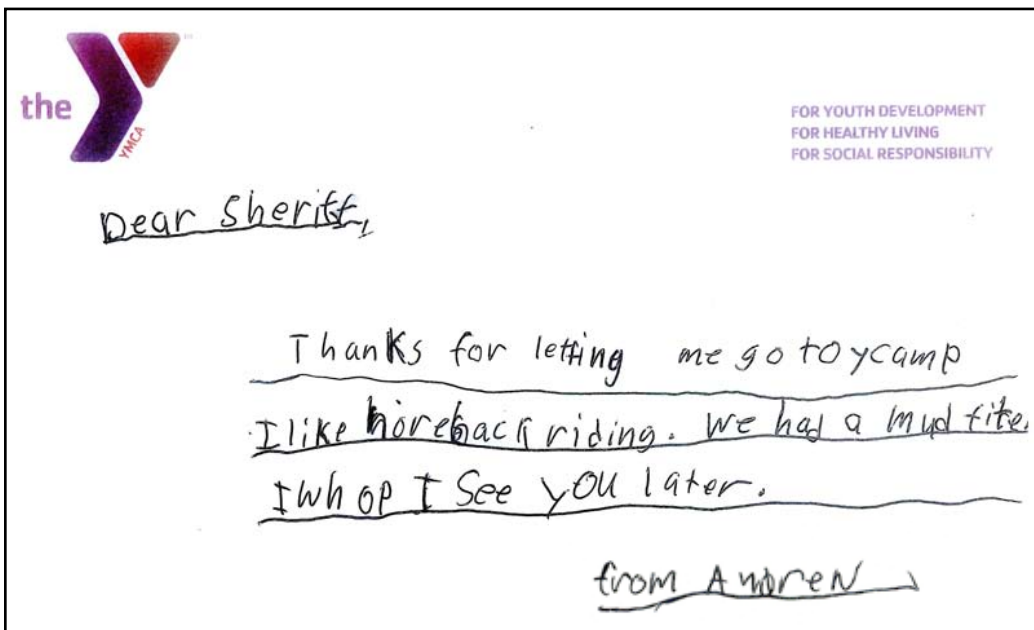 the
YMCA
FOR YOUTH DEVELOPMENT
FOR HEALTHY LIVING
FOR SOCIAL RESPONSIBILITY
Dear Sheriff,
Thanks for letting me go to ycamp
I like horeback riding. We had a mud fite.
I wh op I See you later.
from